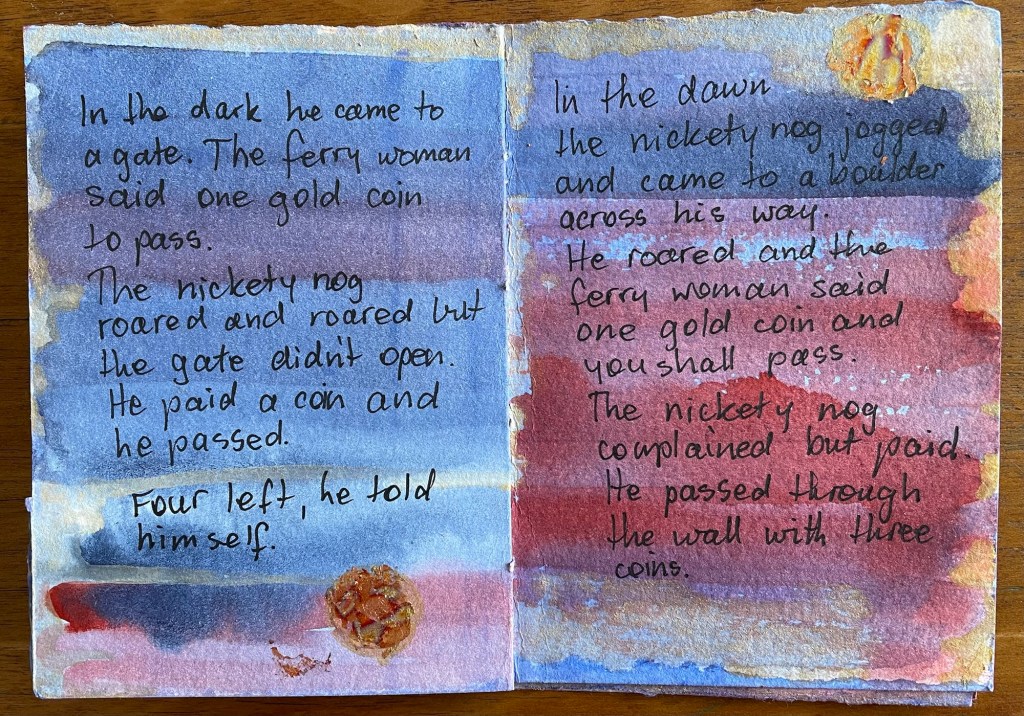 In the dark he came to
a gate. The ferry woman
said one gold coin
to pass.
The nickety nog
roared and roared but
the gate didn't open.
He paid a coin and
he passed.
Four left, he told
himself.
In the dawn
the nickety nog jogged
and came to a boulder
across his way.
He roared and the
ferry woman said
one gold coin and
you shall pass.
The nickety nog
complained but paid.
He passed through
the wall with three
coins.